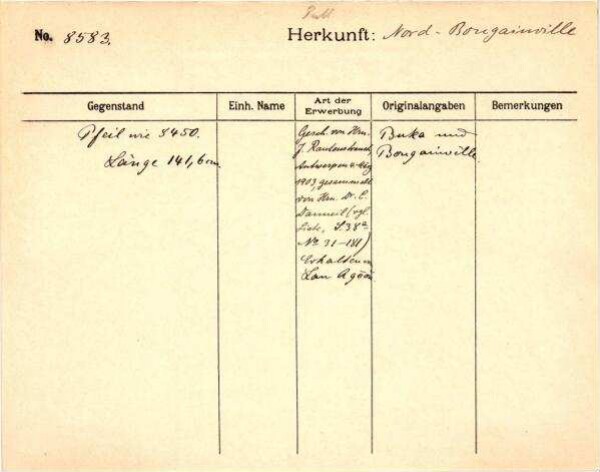 No. 8583.
Herkunft: Nord-Bougainville
Gegenstand
Einh. Name
Art der Erwerbung
Originalangaben
Bemerkungen
Pfeil wie 8450.
Länge 141,6 cm
Gesch. von Hrn.
J. Rautenstrauch,
Antwerpen
1913, gesammelt
von Hrn. Dr. E.
(vgl.
Liste, S. 38a
No 31-181)
Erhalten
Buka und
Bougainville.